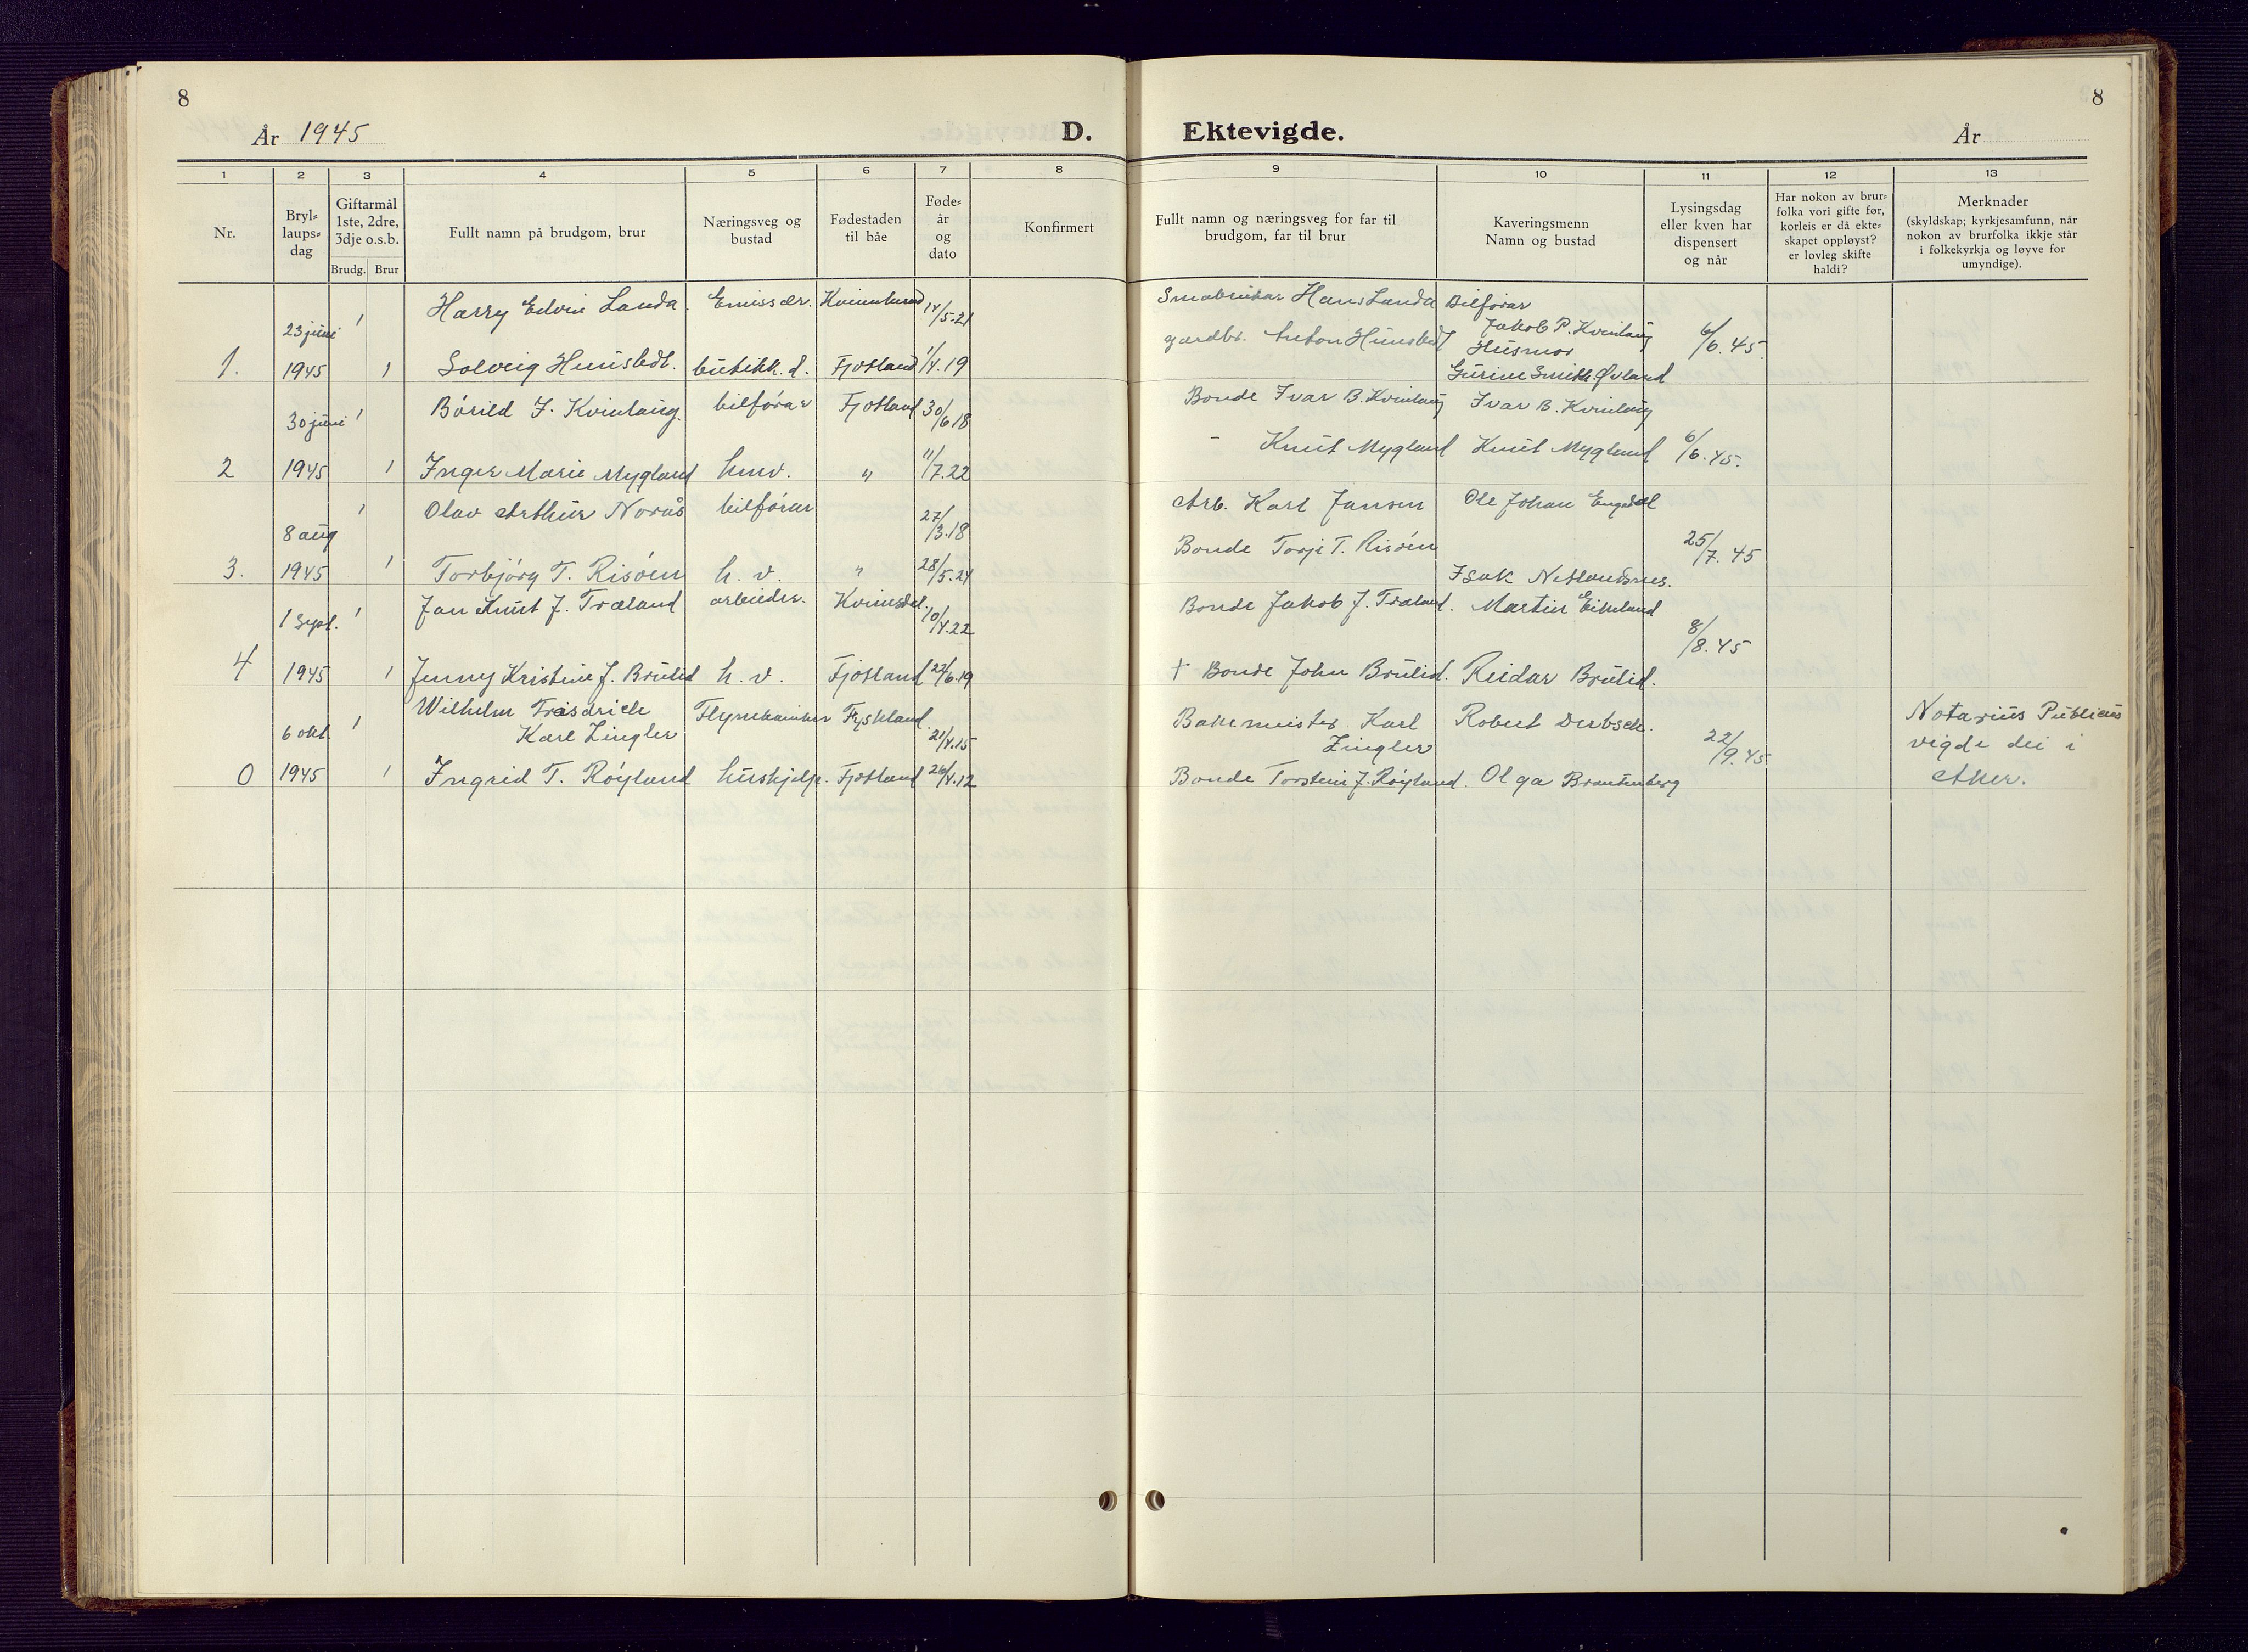 8
8
År 1945
D. Ektevigde.
År
1 2 3 4 5 6 7 8 9 10 11 12 13
Nr.
Bryl=
laups=
dag
Giftarmål
1ste, 2dre,
3dje o.s.b.
Brudg. Brur
Fullt namn på brudgom, brur
Næringsveg og
bustad
Fødestaden
til båe
Føde=
år
og
dato
Konfirmert
Fullt namn og næringsveg for far til
brudgom, far til brur
Kaveringsmenn
Namn og bustad
Lysingsdag
eller kven har
dispensert
og når
Har nokon av brur=
folka vori gifte før,
korleis er då ekte=
skapet oppløyst?
er lovleg skifte
haldi?
Merknader
(skyldskap; kyrkjesamfunn, når
nokon av brurfolka ikkje står
i folkekyrkja og løyve for
umyndige).
23 juni 1 Harry Edvin Landa. Emissær. Kvinnherad 14/5.21 Småbrukar Hans Landa Bilførar
Jakob P. Kvinlaug
1. 1945 1 Solveig Hunsbedt. butikk.d. Fjotland 1/4.19 gardbr. Anton Hunsbedt Husmor 6/6.45.
Gurine Smith Øvland
30 juni 1 Bórild I. Kvinlaug. bilførar Fjotland 30/6 18 Bonde Ivar B. Kvinlaug Ivar B. Kvinlaug
2 1945 1 Inger Marie Mygland hmv. " 11/7.22 - Knut Mygland Knut Mygland 6/6.45.
8 aug 1 Olav Arthur Norås bilførar 27/3.18 Arb. Karl Jansen Ole Johan Engedal
3. 1945 1 Torbjórg T. Risóen h. v. " 28/5.24 Bonde Torje T. Risóen Isak Netlandsnes. 25/7.45
1 sept. 1 Jan Knut J. Træland arbeider. Kvinesdal. 10/4.22 Bonde Jakob J. Træland. Martin Eikeland
4 1945 1 Jenny Kristine J. Brulid h. v. Fjotland 27/6.19 † Bonde John Brulid. Reidar Brulid. 8/8.45
6 okt. 1 Wilhelm Friedrich
Karl Zingler Flymekaniker Tyskland 21/4.15 Bakermeister Karl
Zingler Robert Derbsch. 22/9.45 Notarius Publicus
vigde dei i
0 1945 1 Ingrid T. Róyland hushjelp. Fjotland 26/4.12 Bonde Torstein J. Róyland. Olga Brandenberg Aker.